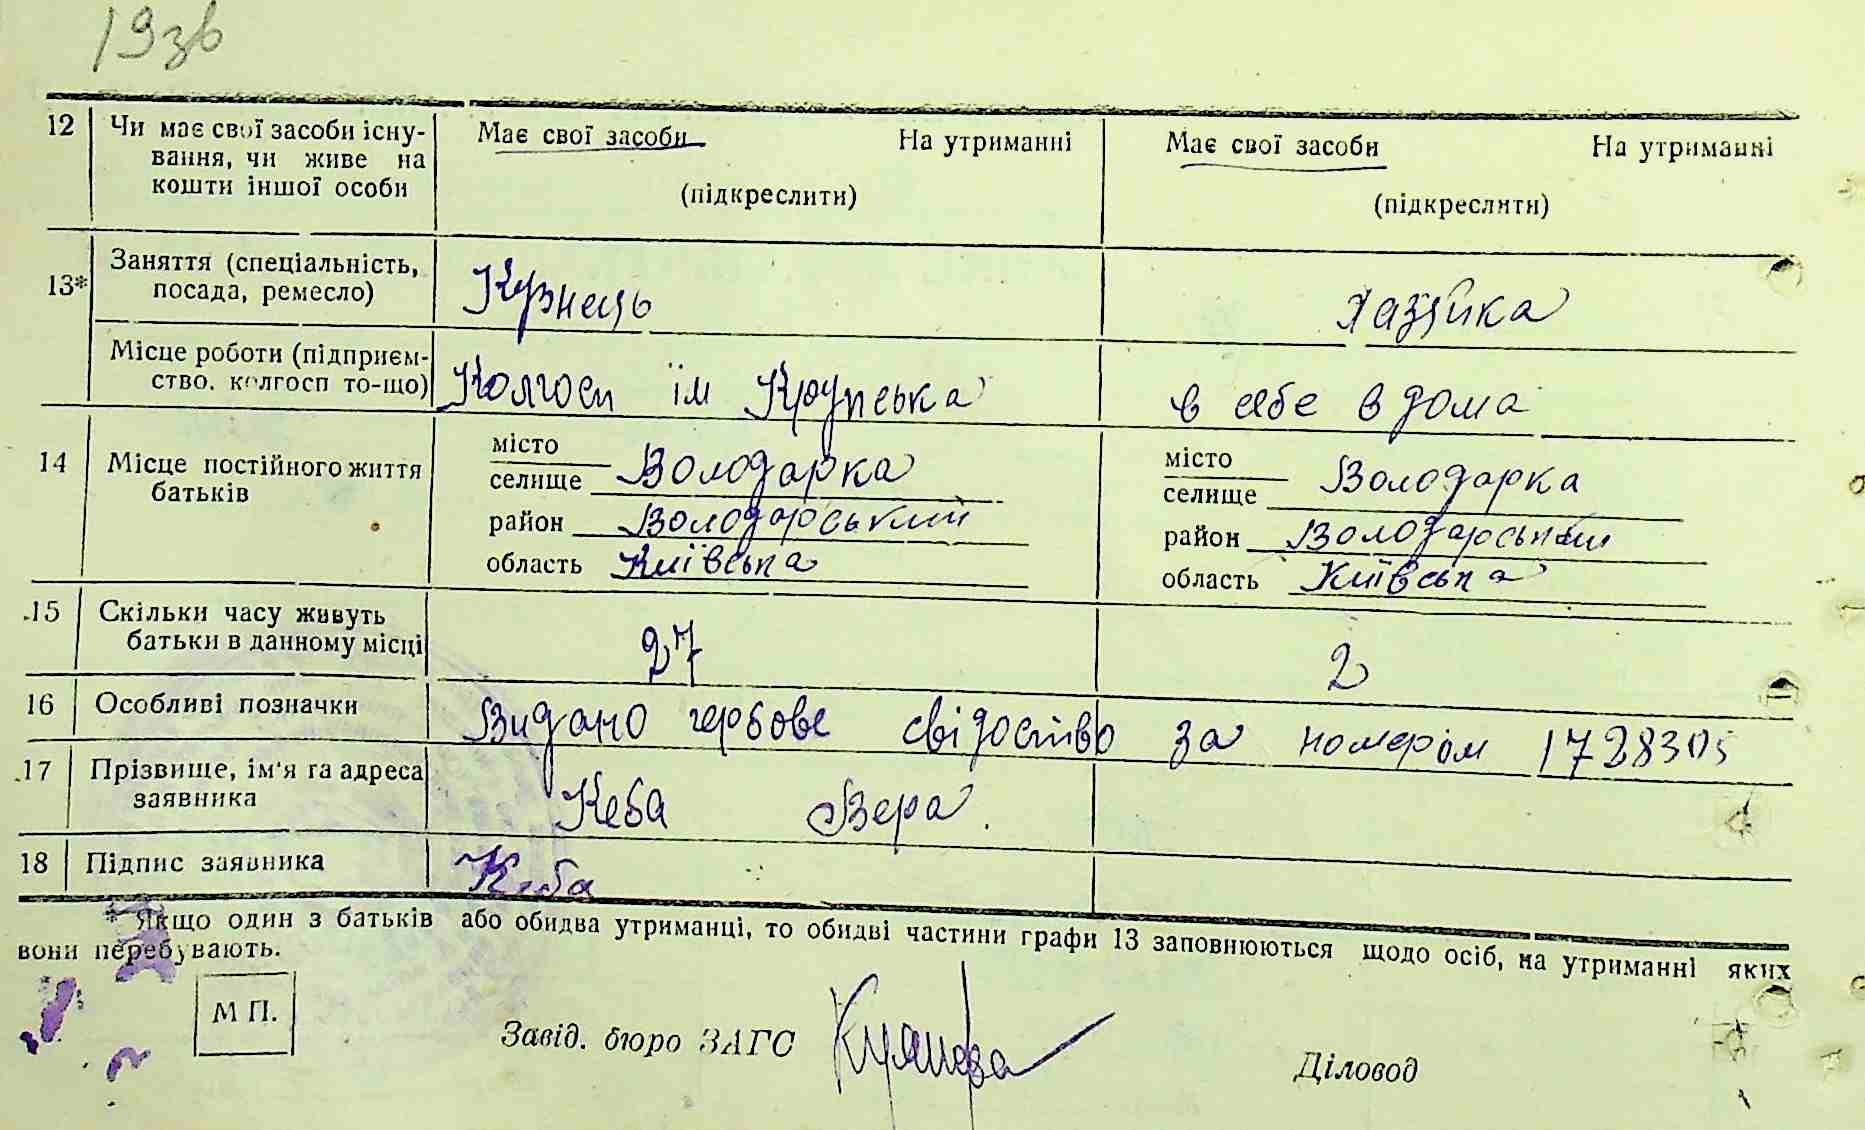 19зв
12 Чи має свої засоби існу- Має свої засоби На утриманні Має свої засоби На утриманні
вання, чи живе на
кошти іншої особи (підкреслити) (підкреслити)
13* Заняття (спеціальність, Кузнець Хазяйка
посада, ремесло)
Місце роботи (підприєм- Колгосп їм Крупська в себе в дома
ство, колгосп то-що)
14 Місце постійного життя місто місто
батьків селище Володарка селище Володарка
район Володарський район Володарський
область Київська область Київська
15 Скільки часу живуть 27 2
батьки в данному місці
16 Особливі позначки Видано гербове свідоство за номером 1728305
17 Прізвище, ім'я та адреса Кеба Вера.
заявника
18 Підпис заявника Кеба
* Якщо один з батьків або обидва утриманці, то обидві частини графи 13 заповнюються щодо осіб, на утриманні яких
вони перебувають.
М П.
Завід. бюро ЗАГС Діловод